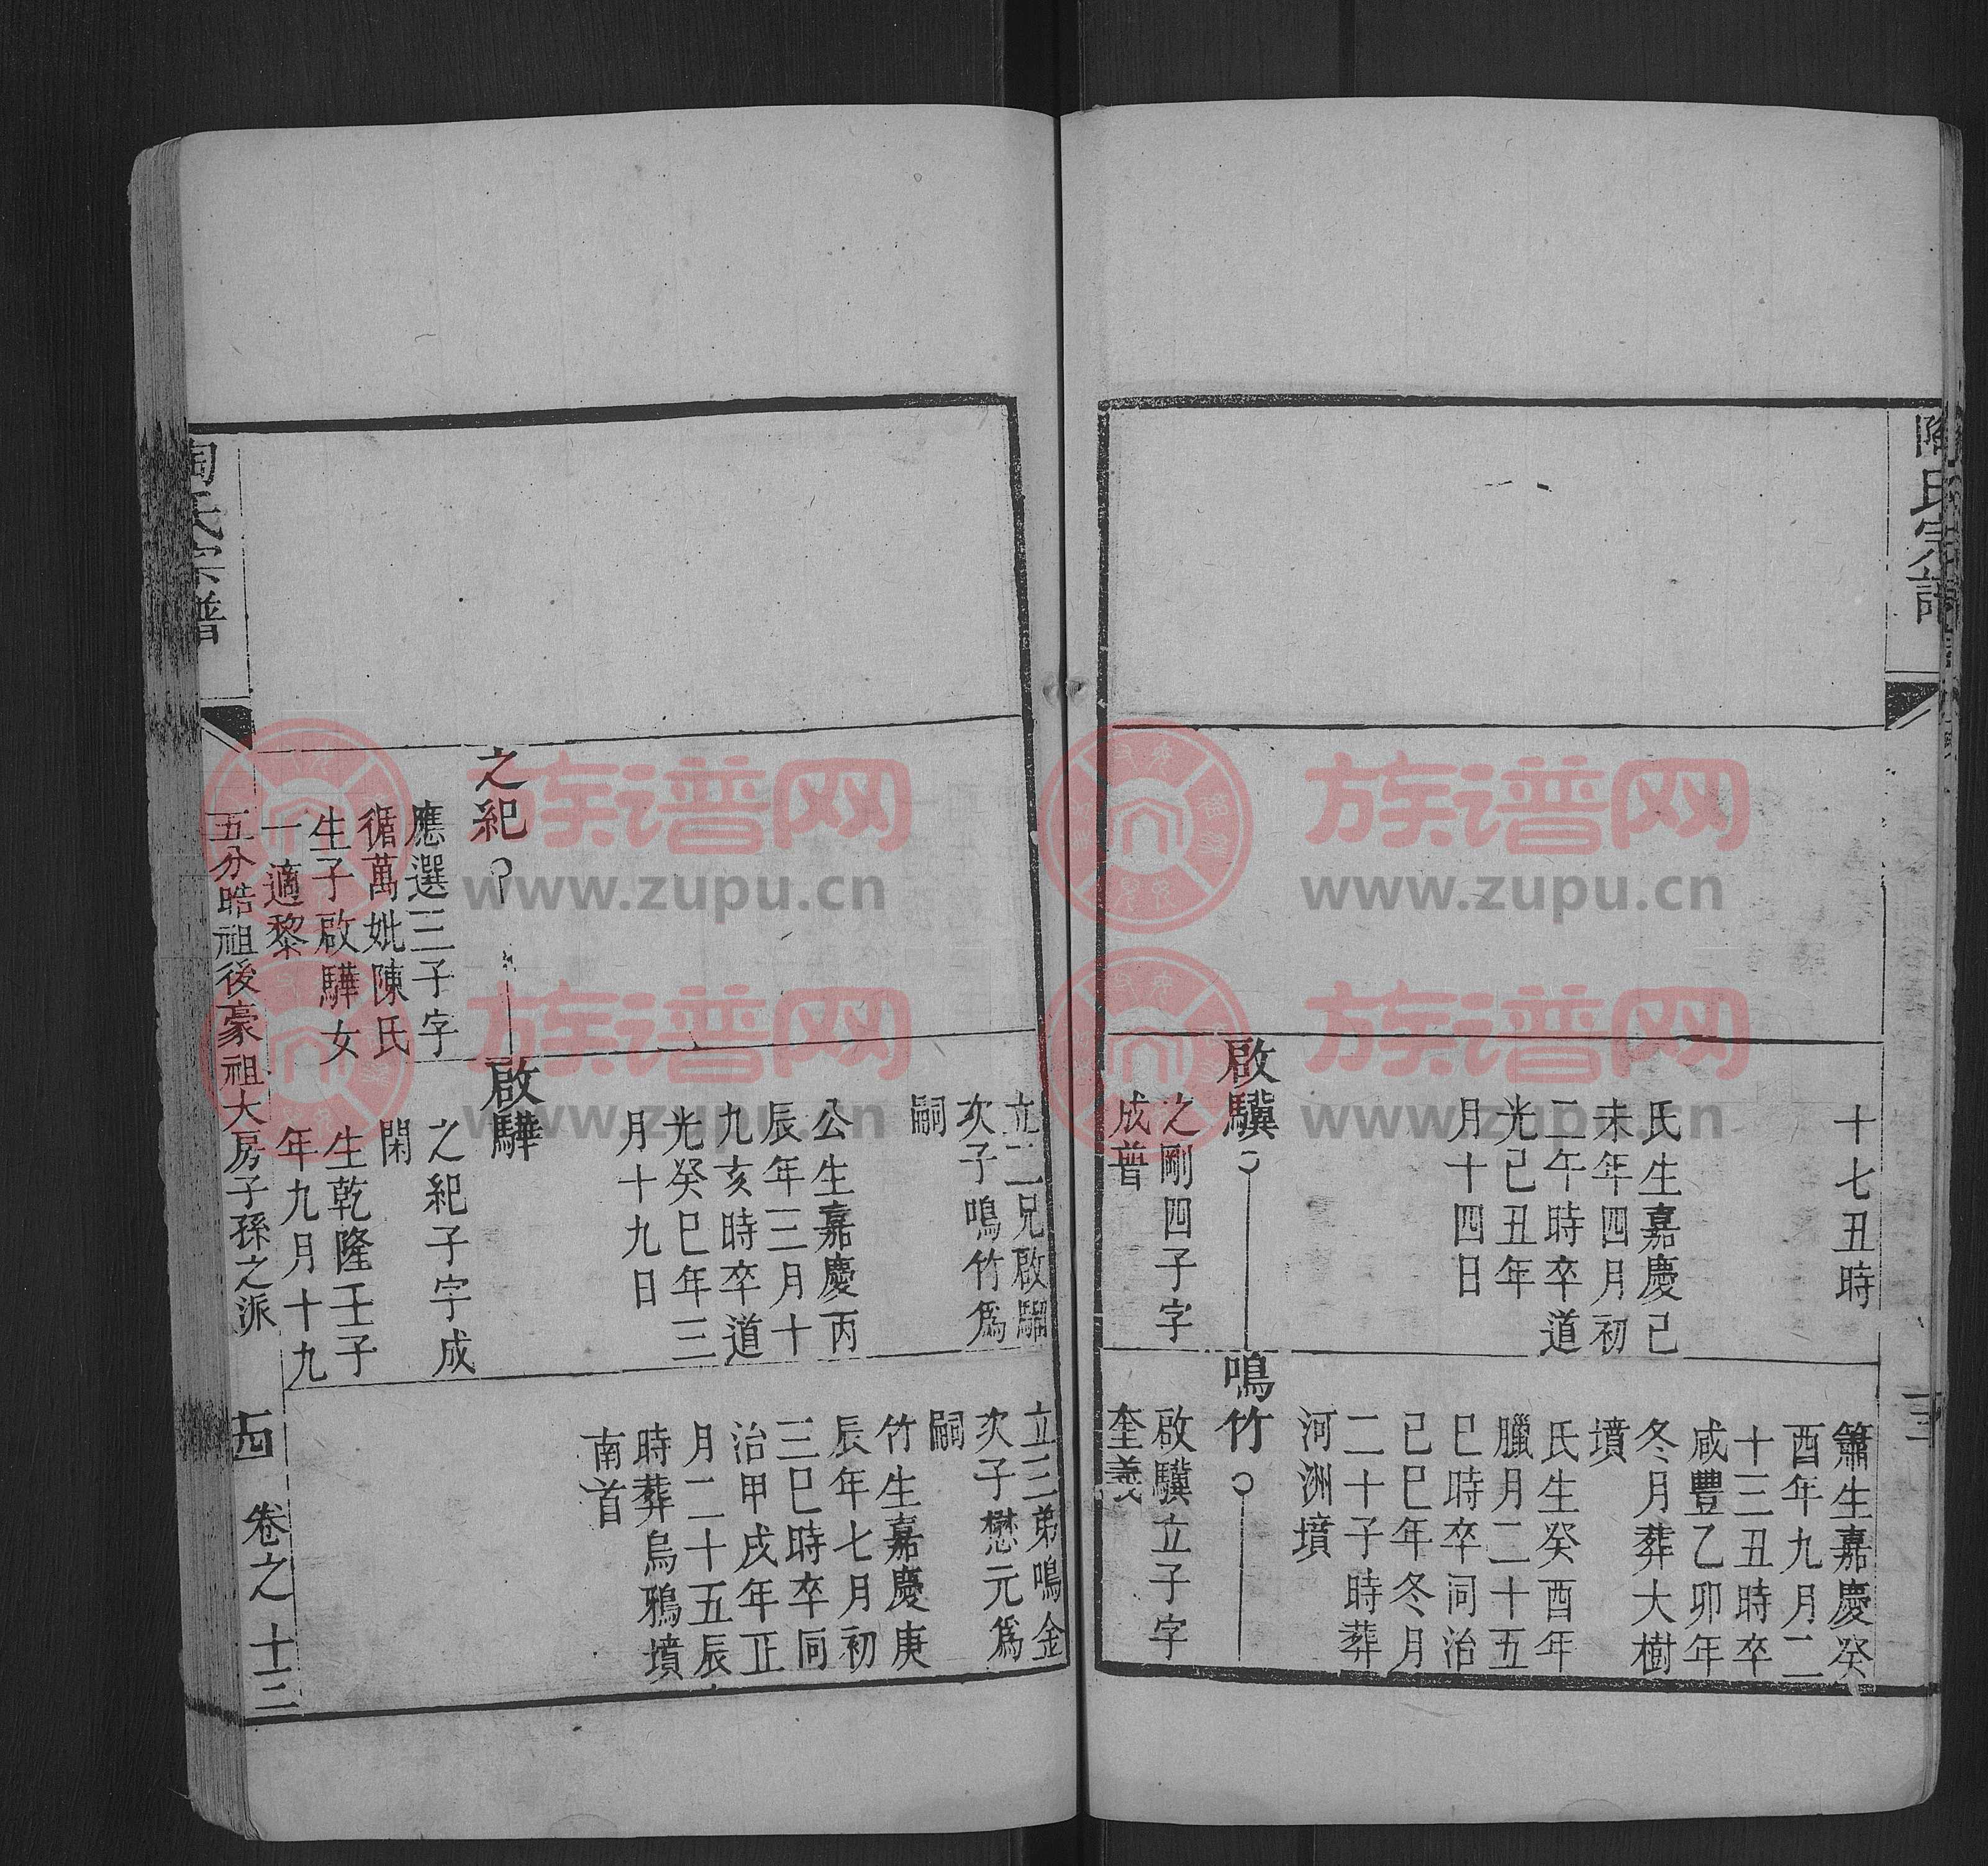 陶氏宗譜
十七丑時
氏生嘉慶己
未年四月初
二午時卒道
光己丑年
月十四日
啟驥
之剛四子字
成普
簫生嘉慶癸
酉年九月二
十三丑時卒
咸豐乙卯年
冬月葬大樹
墳
氏生癸酉年
臘月二十五
巳時卒同治
己巳年冬月
二十子時葬
河洲墳
鳴竹
啟驥立子字
奎義
立二兄啟騮
次子鳴竹為
嗣
公生嘉慶丙
辰年三月十
九亥時卒道
光癸巳年三
月十九日
立三弟鳴金
次子懋元為
嗣
竹生嘉慶庚
辰年七月初
三巳時卒同
治甲戌年正
月二十五辰
時葬烏鴉墳
南首
之紀
應選三子字
循萬妣陳氏
生子啟驊女
一適黎
啟驊
之紀子字成
閑
生乾隆壬子
年九月十九
陶氏宗譜
五分晧祖後豪祖大房子孫之派
十四
卷之十三
族谱网
www.zupu.cn
族谱网
www.zupu.cn
族谱网
族谱网